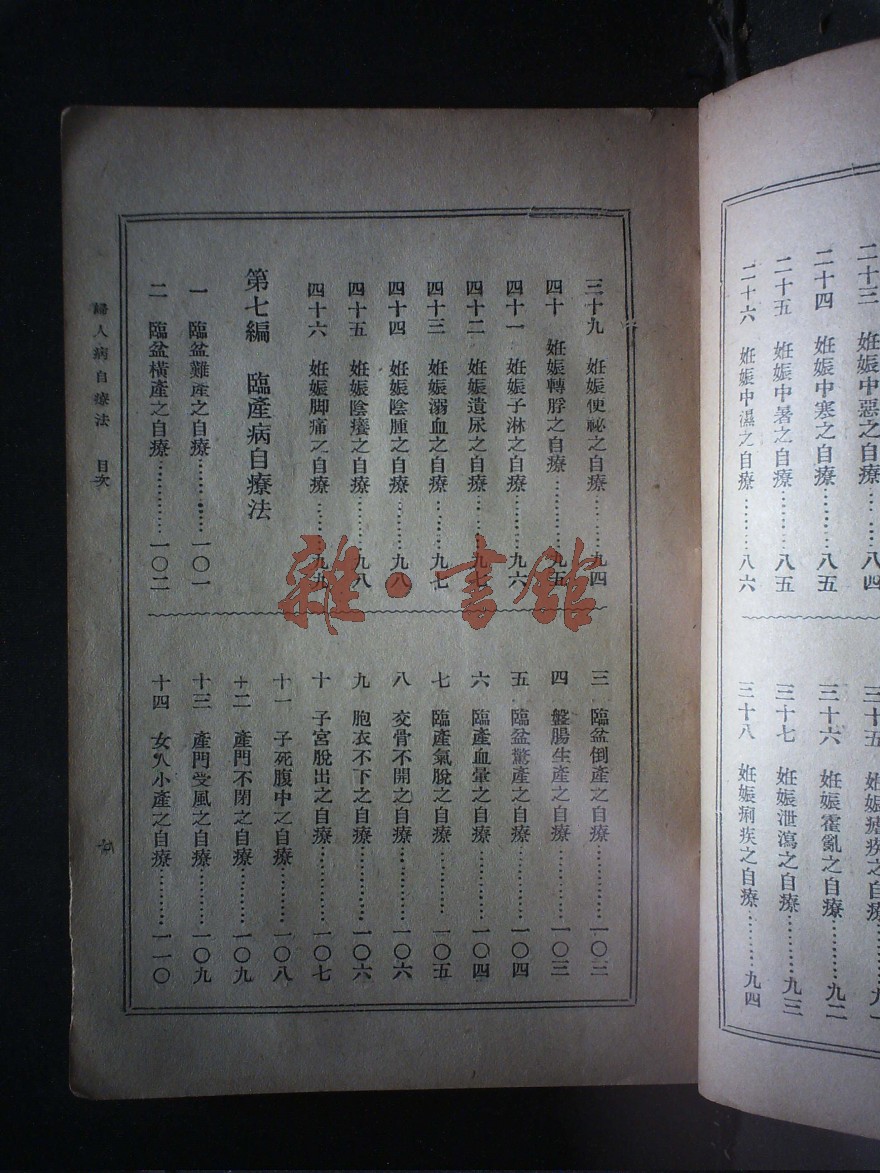 二十三 妊娠中惡之自療………八四
二十四 妊娠中寒之自療………八五
二十五 妊娠中暑之自療………八五
二十六 妊娠中濕之自療………八六
三十五 妊娠瘧疾之自療
三十六 妊娠霍亂之自療………九二
三十七 妊娠泄瀉之自療………九三
三十八 妊娠痢疾之自療………九四
三十九 妊娠便祕之自療………九四
四十 妊娠轉脬之自療………九五
四十一 妊娠子淋之自療………九六
四十二 妊娠遺尿之自療………九七
四十三 妊娠溺血之自療………九七
四十四 妊娠陰腫之自療………九八
四十五 妊娠陰癢之自療………九八
四十六 妊娠脚痛之自療………九九
第七編 臨產病自療法
一 臨盆難產之自療………一〇一
二 臨盆橫產之自療………一〇二
三 臨盆倒產之自療………一〇三
四 盤腸生產之自療………一〇三
五 臨盆驚產之自療………一〇四
六 臨產血暈之自療………一〇四
七 臨產氣脫之自療………一〇五
八 交骨不開之自療………一〇六
九 胞衣不下之自療………一〇六
十 子宮脫出之自療………一〇七
十一 子死腹中之自療………一〇八
十二 產門不閉之自療………一〇九
十三 產門受風之自療………一〇九
十四 女人小產之自療………一一〇
婦人病自療法 目次
雜·書館